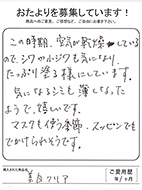 おたよりを募集しています!
この時期、空気が乾燥している
のでシワや小ジワも気になり、
たっぷり塗る様にしています。
気になるシミも薄くなったよ
うで、嬉しいです。
マスクも使う季節、スッピンでも
でかけられそうです。
ご愛用歴
年/ヶ月